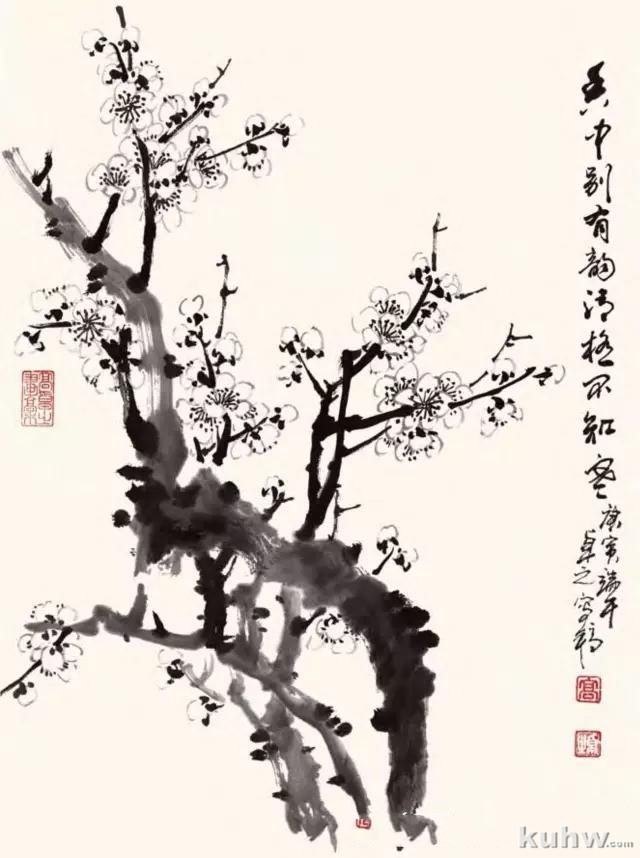 香中别有韵清极不知寒
庚寅端午
卓之写稿
高
kuhw.com